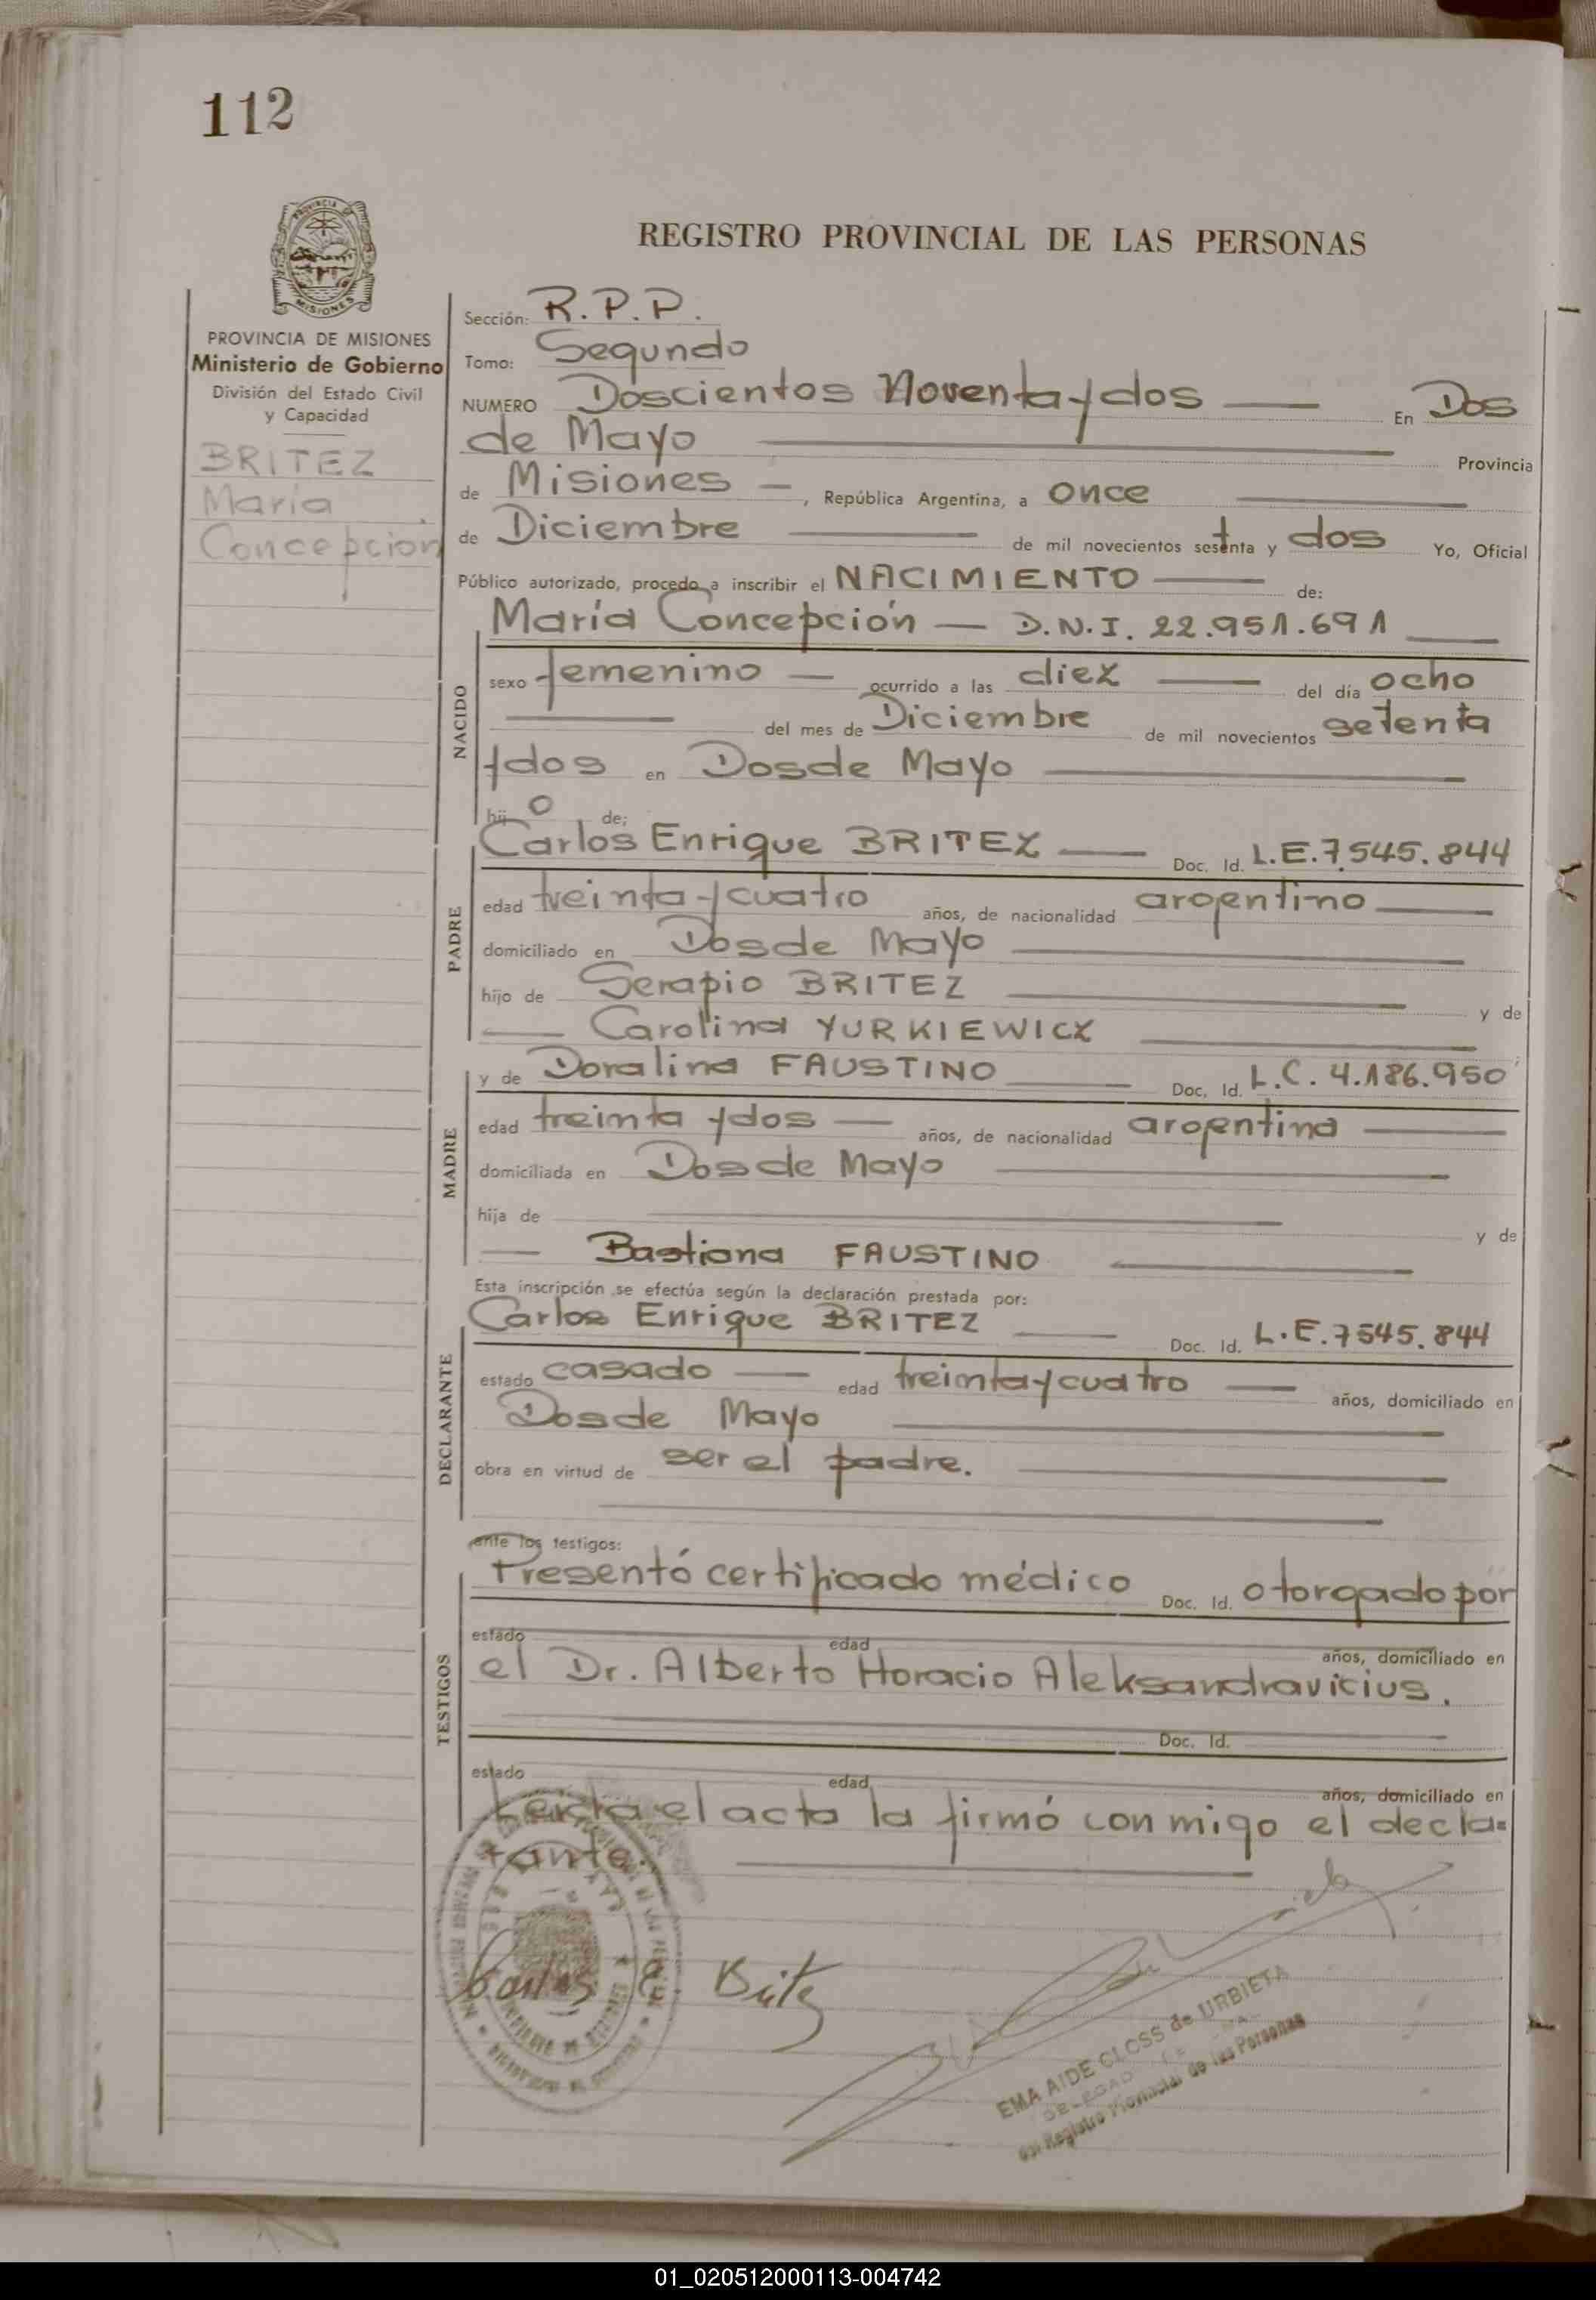 112
REGISTRO PROVINCIAL DE LAS PERSONAS
PROVINCIA DE MISIONES
Ministerio de Gobierno
División del Estado Civil
y Capacidad
BRITEZ
María
Concepcion
Sección: R.P.P.
Tomo: Segundo
NUMERO Doscientos Noventa y dos — En Dos
de Mayo — Provincia
de Misiones —, República Argentina, a once —
de Diciembre — de mil novecientos setenta y dos Yo, Oficial
Público autorizado, procedo a inscribir el NACIMIENTO — de:
María Concepción — D.N.I. 22.951.691 —
NACIDO
sexo femenino — ocurrido a las diez — del día ocho
— del mes de Diciembre de mil novecientos setenta
y dos en Dos de Mayo —
hij o de:
Carlos Enrique BRITEZ — Doc. Id. L.E. 7.545.844
PADRE
edad treinta y cuatro años, de nacionalidad argentino —
domiciliado en Dos de Mayo —
hijo de Serapio BRITEZ — y de
— Carolina YURKIEWICZ —
y de Doralina FAUSTINO — Doc. Id. L.C. 4.186.950
MADRE
edad treinta y dos — años, de nacionalidad argentina —
domiciliada en Dos de Mayo —
hija de — y de
— Bastiana FAUSTINO —
Esta inscripción se efectúa según la declaración prestada por:
Carlos Enrique BRITEZ — Doc. Id. L.E. 7545.844
DECLARANTE
estado casado — edad treinta y cuatro — años, domiciliado en
Dos de Mayo —
obra en virtud de ser el padre. —
ante los testigos:
Presentó certificado médico Doc. Id. otorgado por
TESTIGOS
estado edad años, domiciliado en
el Dr. Alberto Horacio Aleksandravicius.
Doc. Id.
estado edad años, domiciliado en
Leída el acta la firmó conmigo el decla=
rante. —
Carlos E. Britez
EMA AIDE CLOSS de URBIETA
del Registro Provincial de las Personas
01_020512000113-004742